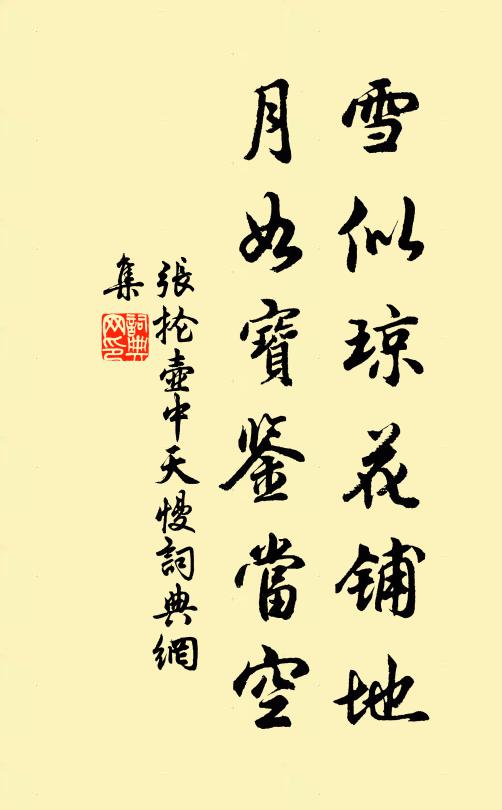 雪似琼花铺地
月如寶鉴當空
張掄壺中天慢詞典網
集
詞典网印